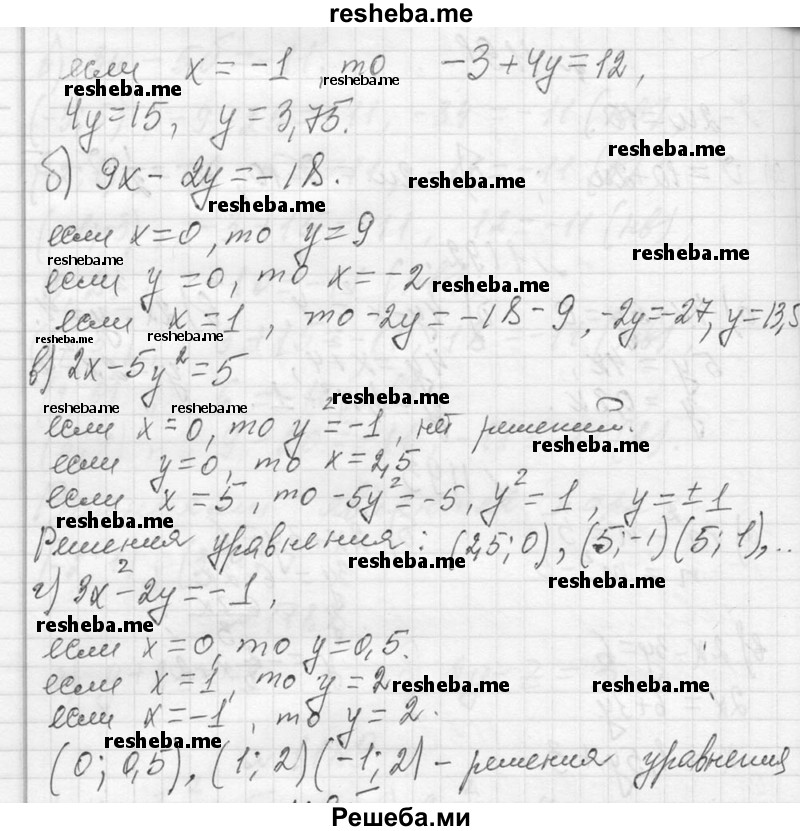 resheba.me
если x = -1, то -3 + 4y = 12,
resheba.me resheba.me
4y = 15, y = 3,75.
resheba.me
б) 9x - 2y = -18.
resheba.me
resheba.me
если x = 0, то y = 9
resheba.me resheba.me
если y = 0, то x = -2
resheba.me
если x = 1, то -2y = -18 - 9, -2y = -27, y = 13,5
resheba.me resheba.me
в) 2x - 5y² = 5
resheba.me resheba.me resheba.me
если x = 0, то y² = -1, нет решений.
resheba.me
если y = 0, то x = 2,5
если x = 5, то -5y² = -5, y² = 1, y = ±1
resheba.me
Решения уравнения: (2,5; 0), (5; -1) (5; 1), ..
resheba.me
resheba.me
г) 3x² - 2y = -1,
resheba.me
если x = 0, то y = 0,5.
если x = 1, то y = 2
resheba.me resheba.me
если x = -1, то y = 2.
resheba.me
(0; 0,5), (1; 2) (-1; 2) - решения уравнения
Решеба.ми